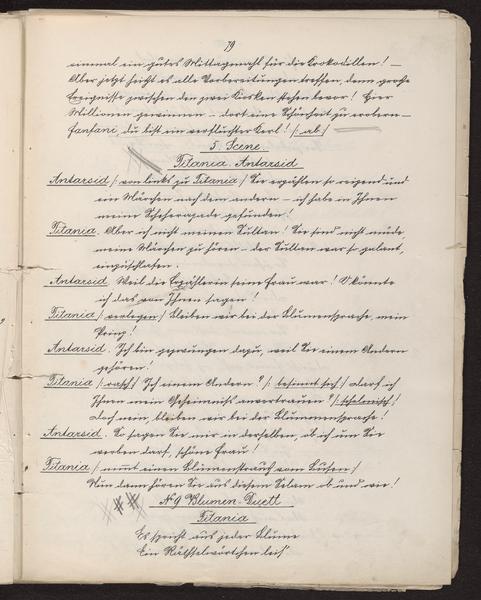 79
einmal ein gutes Mittagsmahl für die Krokodillen! –
Aber jetzt heißt es alle Vorbereitungen treffen, denn große
Ereignisse zwischen den zwei Kiosken stehen bevor! Hier
Millionen gewinnen – dort eine Schönheit zu erobern –
Fanfani, du bist ein verfluchter Kerl! /: ab :/
5. Scene
Titania. Antarsid
Antarsid /: von links zu Titania / Sie erzählen so reizend und
ein Märchen nach dem andern – ich habe in Ihnen
meine Scheherazade gefunden!
Titania. Aber ich nicht meinen Sultan! Sie sind nicht müde
meine Märchen zu hören – der Sultan war so galant,
einzuschlafen.
Antarsid. Weil die Erzählerin seine Frau war! O könnte
ich das von Ihnen sagen!
Titania /: verlegen / Bleiben wir bei der Blumensprache, mein
Prinz!
Antarsid. Ich bin gezwungen dazu, weil Sie einem Andern
gehören!
Titania /: rasch / Ich einem Andern? /: besinnt sich / darf ich
Ihnen mein Geheimniß anvertrauen? /: schelmisch /
doch nein, bleiben wir bei der Blummensprache!
Antarsid. So sagen Sie mir in derselben, ob ich um Sie
werben darf, schöne Frau!
Titania /: nimmt einen Blumenstrauß vom Busen /
Nun dann hören Sie aus diesem Selam ob und wie!
No 9 Blumen-Duett
Titania
Es spricht aus jeder Blume
Ein Räthselwörtchen leis'